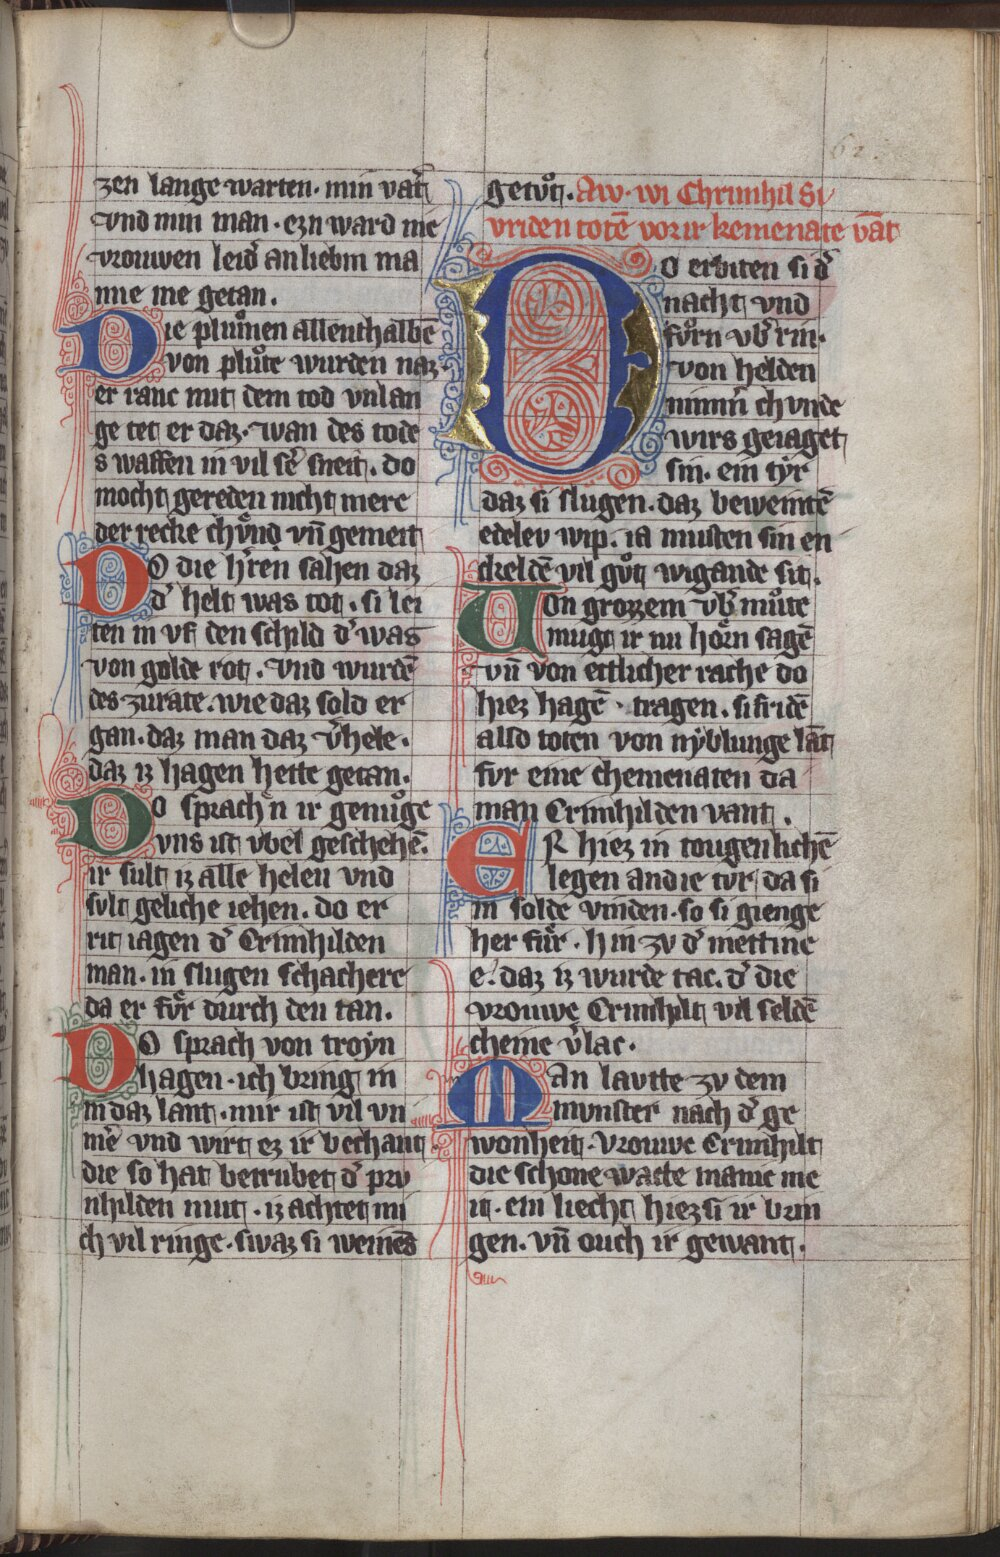 zen lange warten · min vat̄
vnd min man · ezn ward me
vrouwen leid̄ an liebm ma
nne me getan.
Die plůmen allenthalbē
von plůte wurden naz
er ranc mit dem tod vnlan
ge tet er daz · wan des tode
s waffen in vil sēr sneit · do
mocht gereden nicht mere
der recke chůnd vn̄ gemeit
Do die h̄ren sahen daz
d̄ helt was tot · si lei
ten in vf den schild d̄ was
von golde rot · vnd wurdē
des zurate. wie daz sold er
gan. daz man daz v̄hele ·
daz iz hagen hette getan.
Do sprachn̄ ir genůge
vns ist vbel geschehē.
ir sult iz alle helen vnd
sult geliche iehen. do er
rit iagen d̄ Crimhilden
man · in slugen schachere
da er fůr durch den tan.
Do sprach von troyn
hagen · ich bring in
in daz lant · mir ist vil vn
mē vnd wirt ez ir bechant
die so hat betrubet d̄ pru
nhilden mut · iz achtet mi
ch vil ringe · swaz si weines
getůt. Aw · wi Chrimhil Si
vriden totē vor ir kemenate vāt
Do erbiten si d̄
nacht vnd
fůrn vb̄ rin ·
von helden
nimm̄ chvnde
wirs geiaget
sin · ein tyr
daz si slugen. daz beweintē
edelev wip. ia musten sin en
keldē vil gůt wigande sit.
Von grozzem vb̄ můte
mugt ir nu hŏrn sagē
vn̄ von ettlicher rache do
hiez hagē · tragen. sifridē
also toten von nyblunge lāt
fvr eine chemenaten da
man Crimhilden vant ·
ER hiez in tougenlichē
legen an die tvr da si
in solde vinden · so si gienge
her fůr · hin zv d̄ mettine
e · daz iz wurde tac. d̄ die
vrouwe Crimhilt vil seldē
cheine v̄lac ·
Man lavtte zv dem
mvnster nach d̄ ge
wonheit · vrouwe Crimhilt
die schone wacte manic me
it · ein liecht hiez si ir brin
gen. vn̄ ouch ir gewant ·